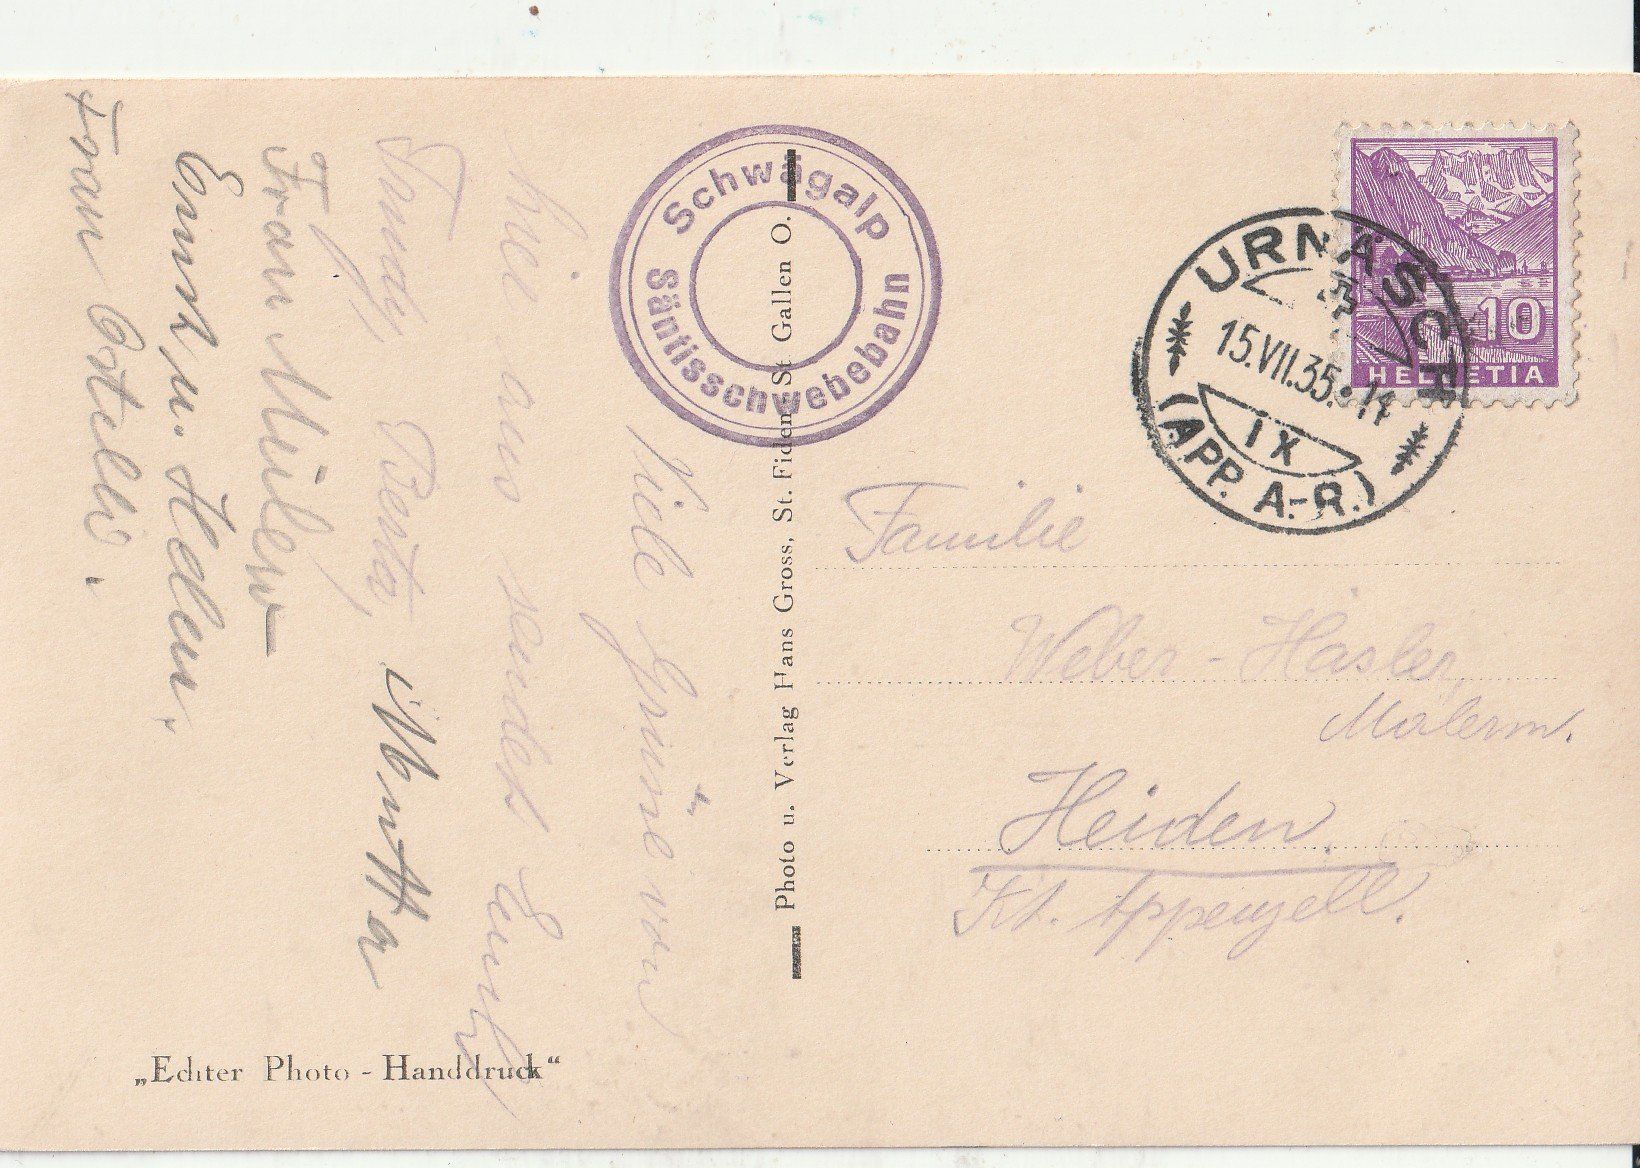 Viele Grüsse von
hier aus sendet Euch
Trudy, Berta, Martha
Frau Müller
Ernst u. Hedw.
Frau
Schwägalp
Säntisschwebebahn
Photo u. Verlag Hans Gross, St. Fiden-St. Gallen O.
„Echter Photo - Handdruck“
10
HELVETIA
URNÄSCH
15.VII.35. 14
IX
(APP. A.-R.)
Familie
Weber - Hasler,
Malerm.
Heiden.
Kt. Appenzell.